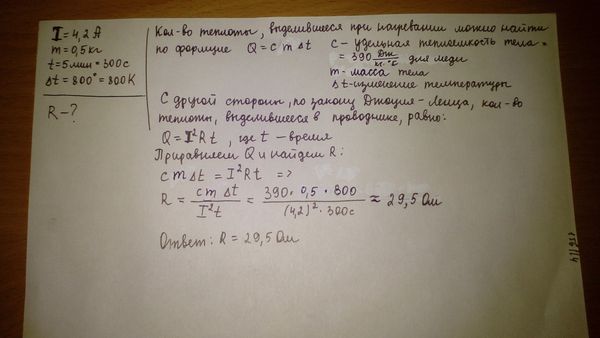 I = 4,2 А
m = 0,5 кг
t = 5 мин = 300 с
Δt = 800° = 800 К
R - ?
Кол-во теплоты, выделившееся при нагревании можно найти
по формуле Q = c m Δt
c - удельная теплоёмкость тела =
= 390 Дж/кг·°C для меди
m - масса тела
Δt - изменение температуры
С другой стороны, по закону Джоуля-Ленца, кол-во
теплоты, выделившееся в проводнике, равно:
Q = I²Rt, где t - время
Приравняем Q и найдем R:
c m Δt = I²Rt =>
R = cm Δt / I²t = 390 · 0,5 · 800 / (4,2)² · 300с ≈ 29,5 Ом
Ответ: R = 29,5 Ом